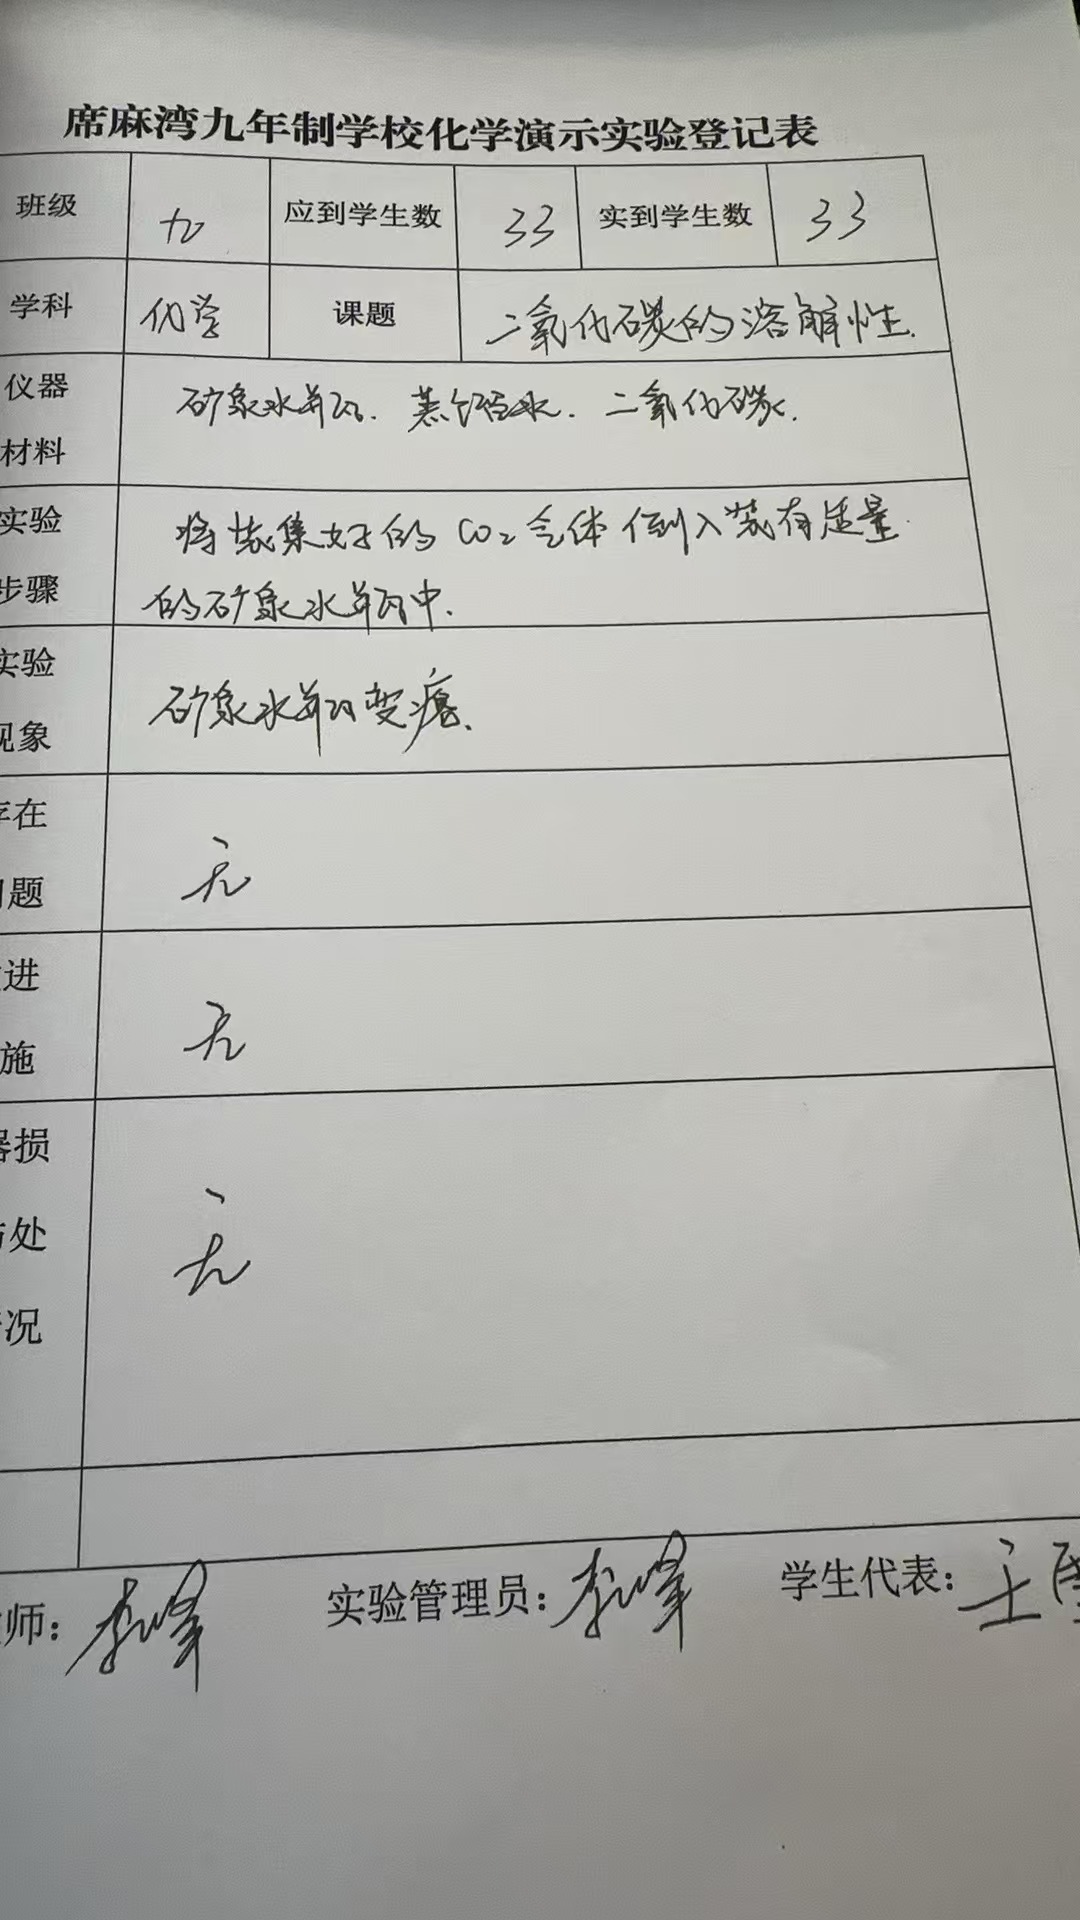 席麻湾九年制学校化学演示实验登记表
班级 九 应到学生数 33 实到学生数 33
学科 化学 课题 二氧化碳的溶解性.
仪器
材料
矿泉水瓶. 蒸馏水. 二氧化碳.
实验
步骤
将收集好的CO2气体倒入装有适量
的矿泉水瓶中.
实验
现象
矿泉水瓶变瘪.
存在
问题
无
进
施
无
器损
处
况
无
师: 李峰 实验管理员: 李峰 学生代表: 王